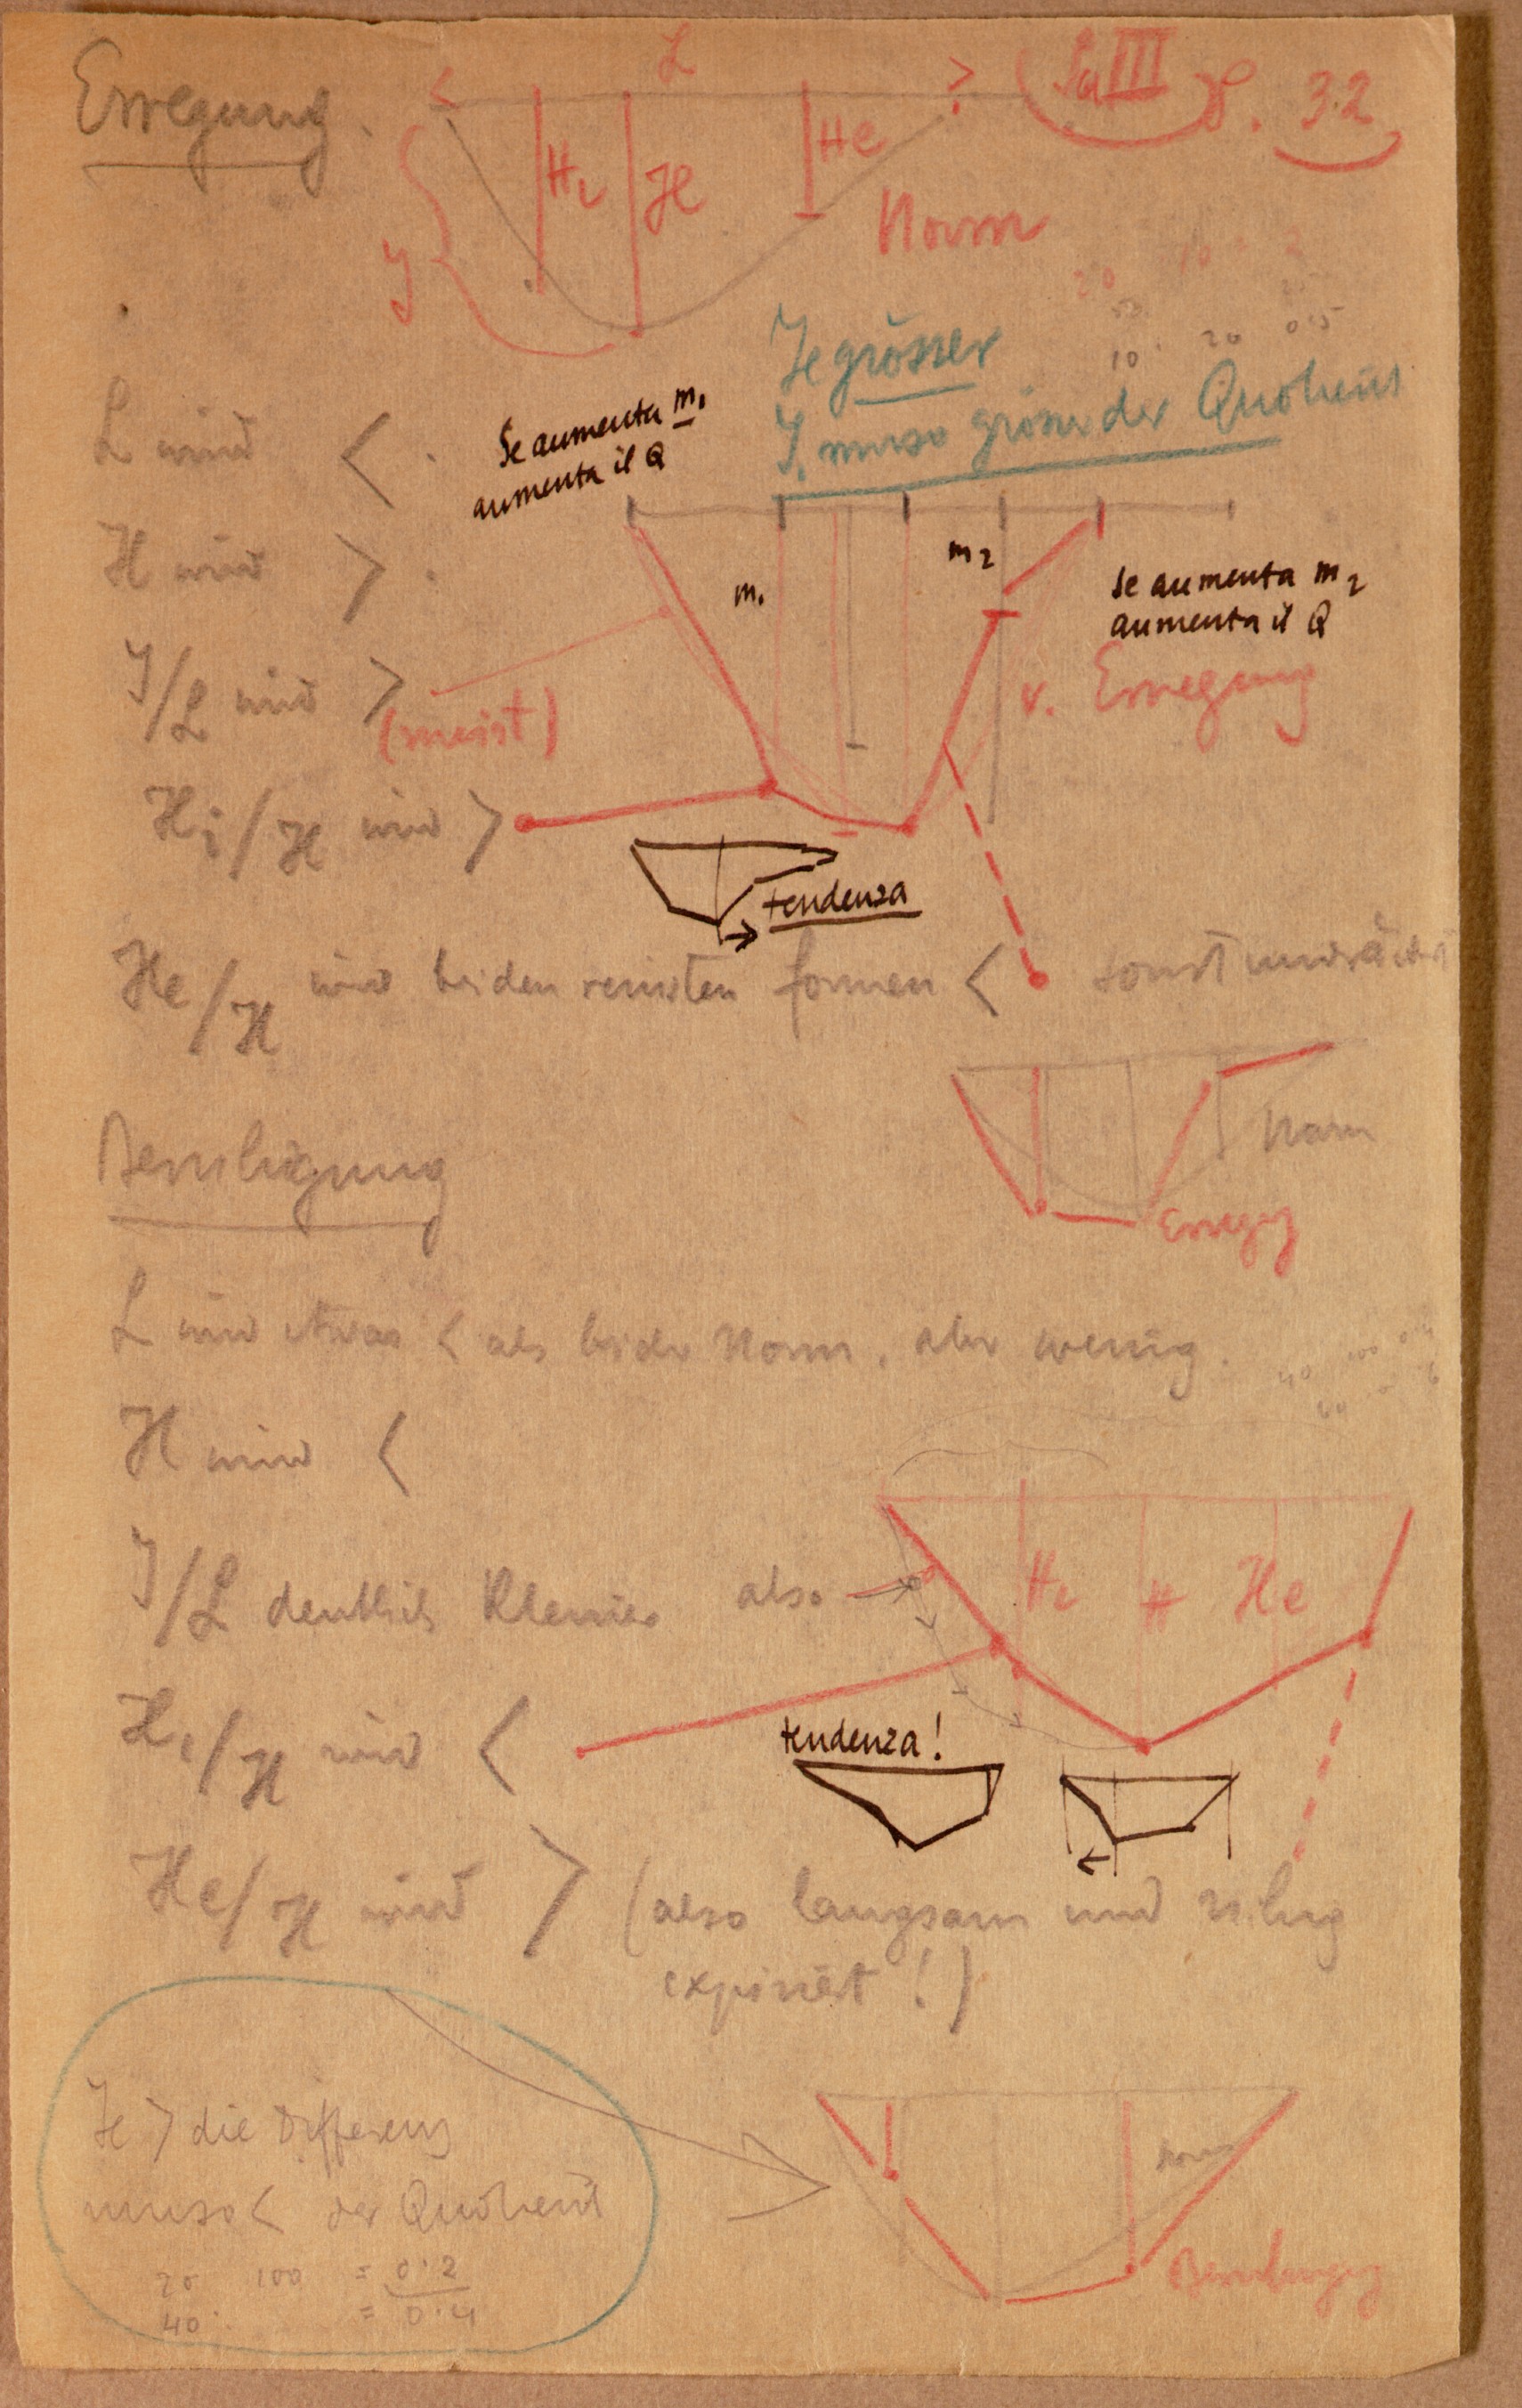 Erregung.
L
(Sa III) S. 32
Hi
H
He
J
Norm
20 10 = 2
10 20 0.5
Je grösser
J, umso grösser der Quotient
L wird <
Se aumenta m1
aumenta il Q
H wird >
m1
m2
Se aumenta m2
aumenta il Q
J/L wird >
(meist)
v. Erregung
Hi/H wird >
tendenza
He/H wird bei den reinsten formen < sonst
Norm
Erregg
Beruhigung
L wird etwas < als bei der Norm, aber wenig.
H wird <
J/L deutlich kleiner also
Hi
H
He
Hi/H wird <
tendenza!
He/H wird > (also langsam und ruhig
expiriert!)
Je > die Differenz
umso < der Quotient
20 100 = 0.2
40. = 0.4
Norm
Beruhigg